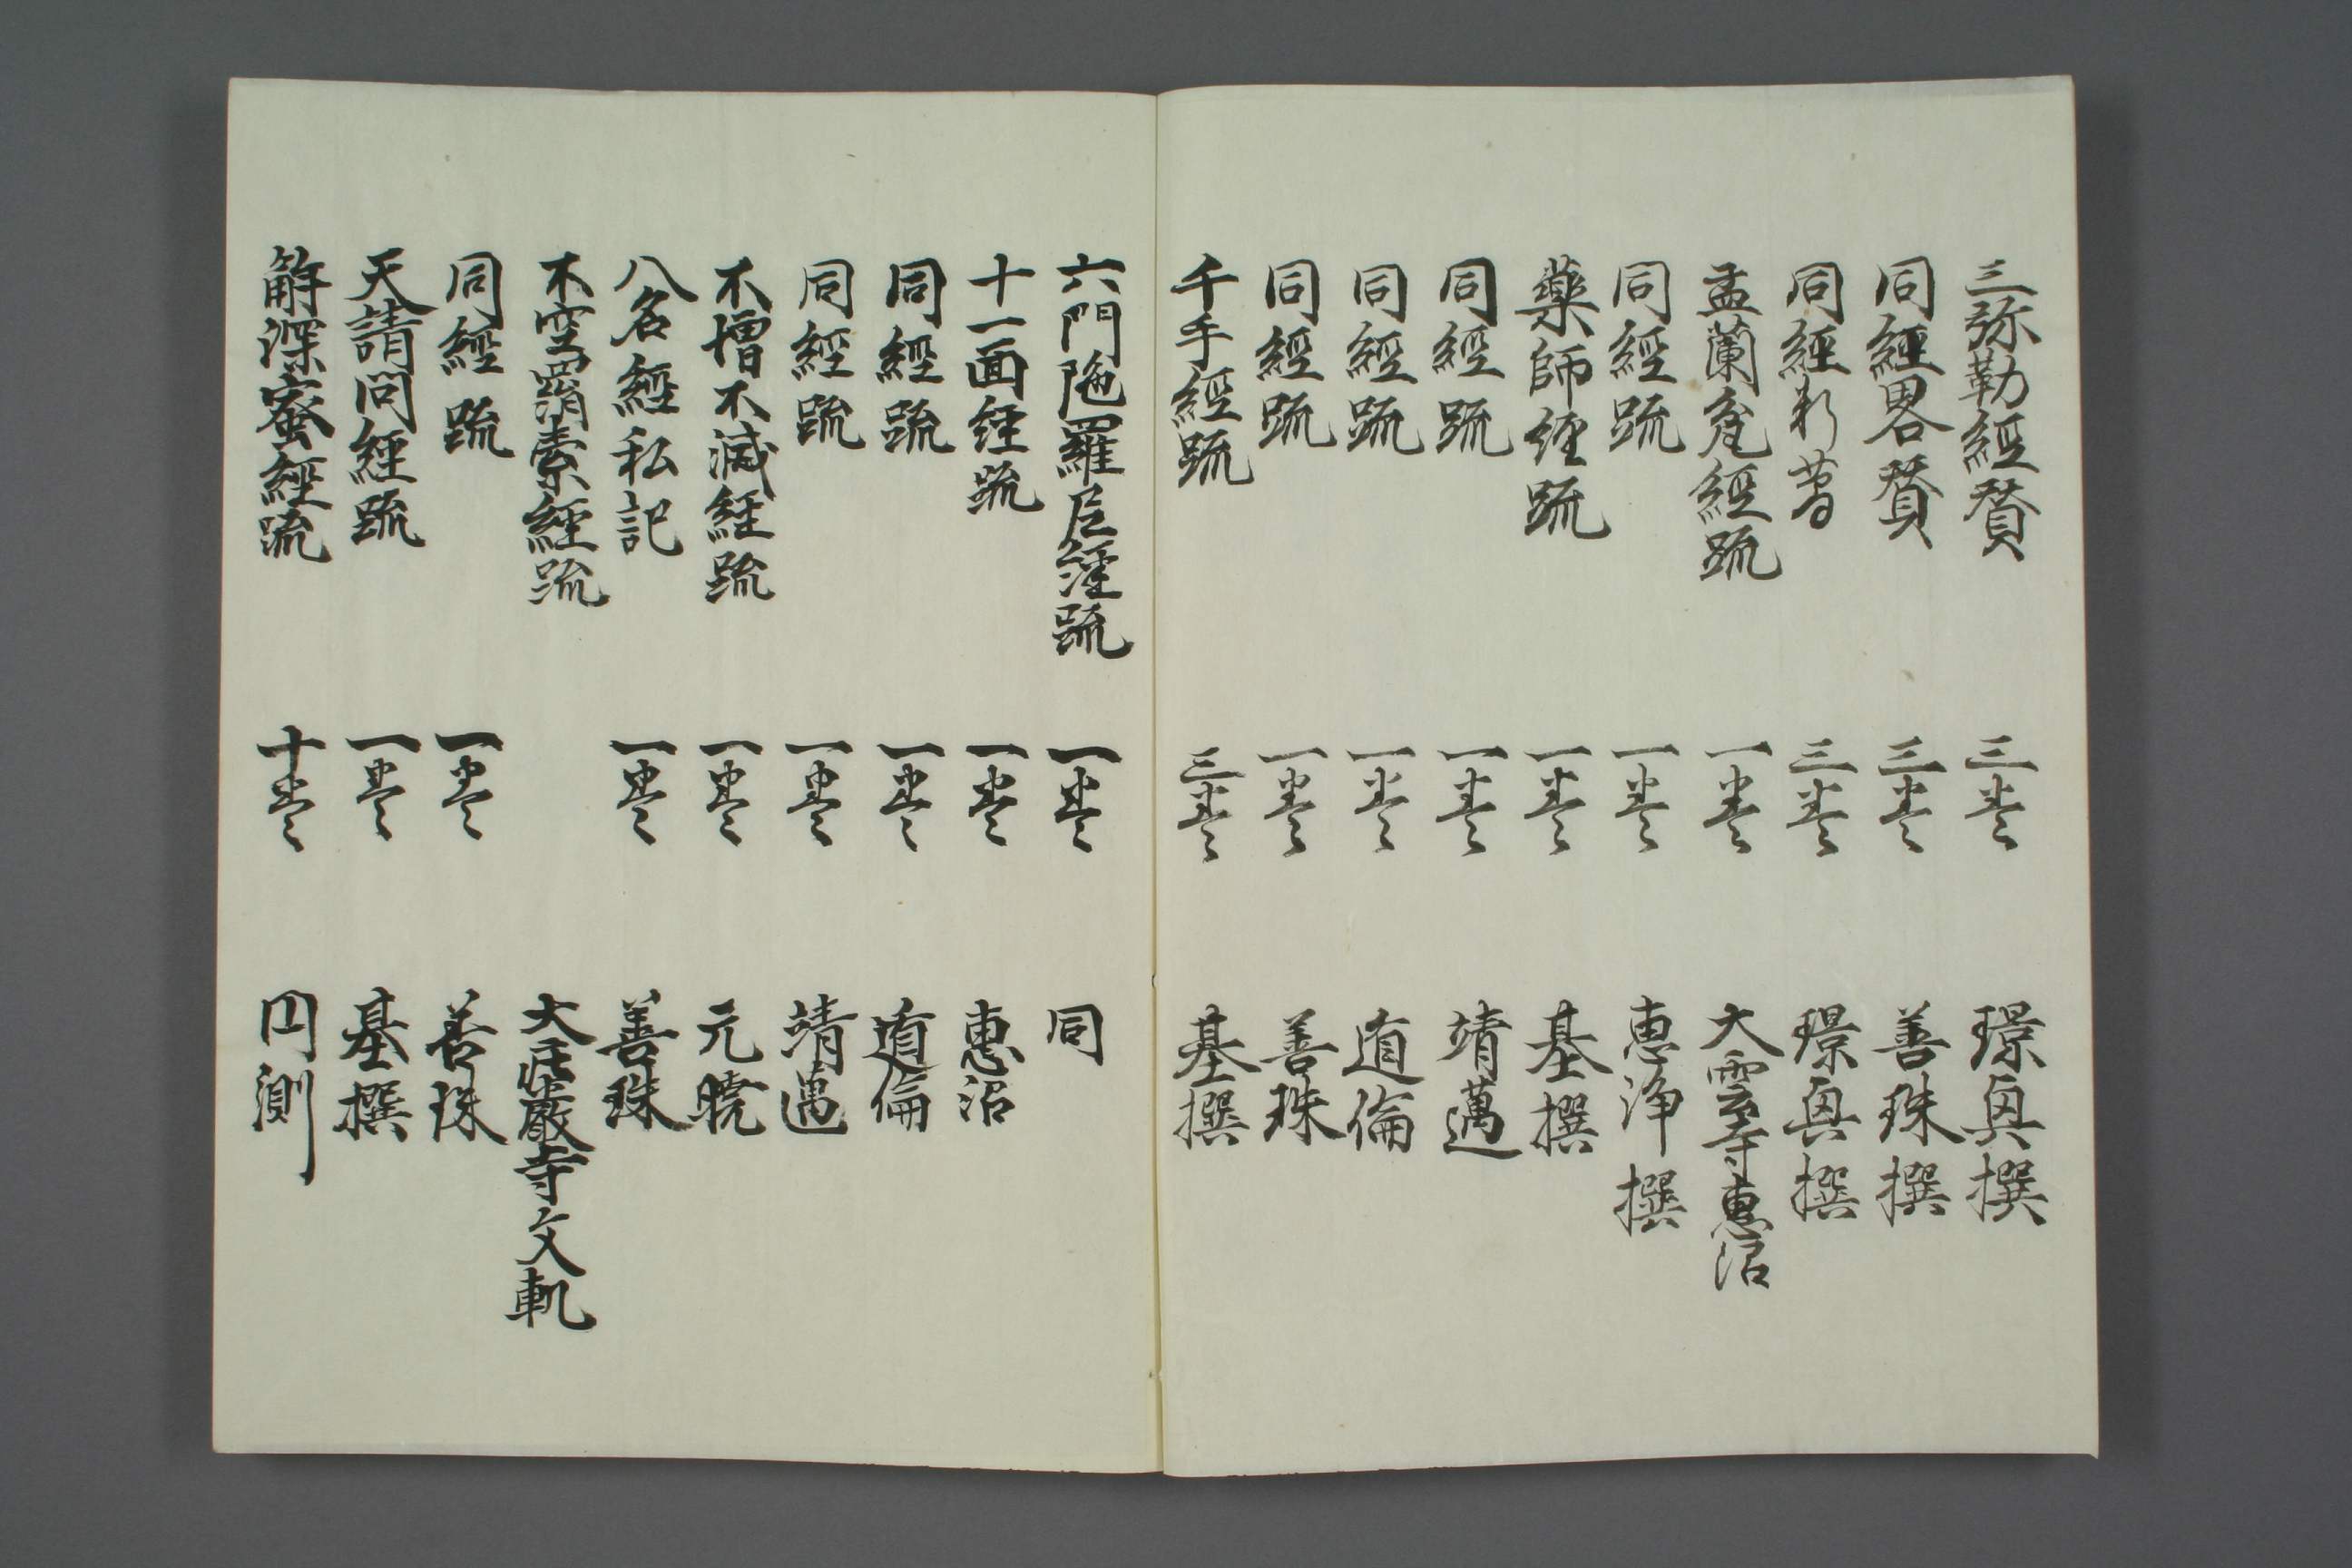 三弥勒經賛 三巻 璟興撰
同經畧賛 三巻 善珠撰
同經料蕳 三巻 璟興撰
盂蘭瓫經疏 一巻 大雲寺惠沼
同經疏 一巻 恵浄撰
藥師經疏 一巻 基撰
同經疏 一巻 靖邁
同經疏 一巻 道倫
同經疏 一巻 善珠
千手經疏 三巻 基撰
六門陁羅尼經疏 一巻 同
十一面経疏 一巻 惠沼
同經疏 一巻 道倫
同經疏 一巻 靖邁
不増不減經疏 一巻 元暁
八名經私記 一巻 善珠
不空羂索經疏 大荘嚴寺文軌
同經疏 一巻 善珠
天請問經疏 一巻 基撰
解深蜜經疏 十巻 円測